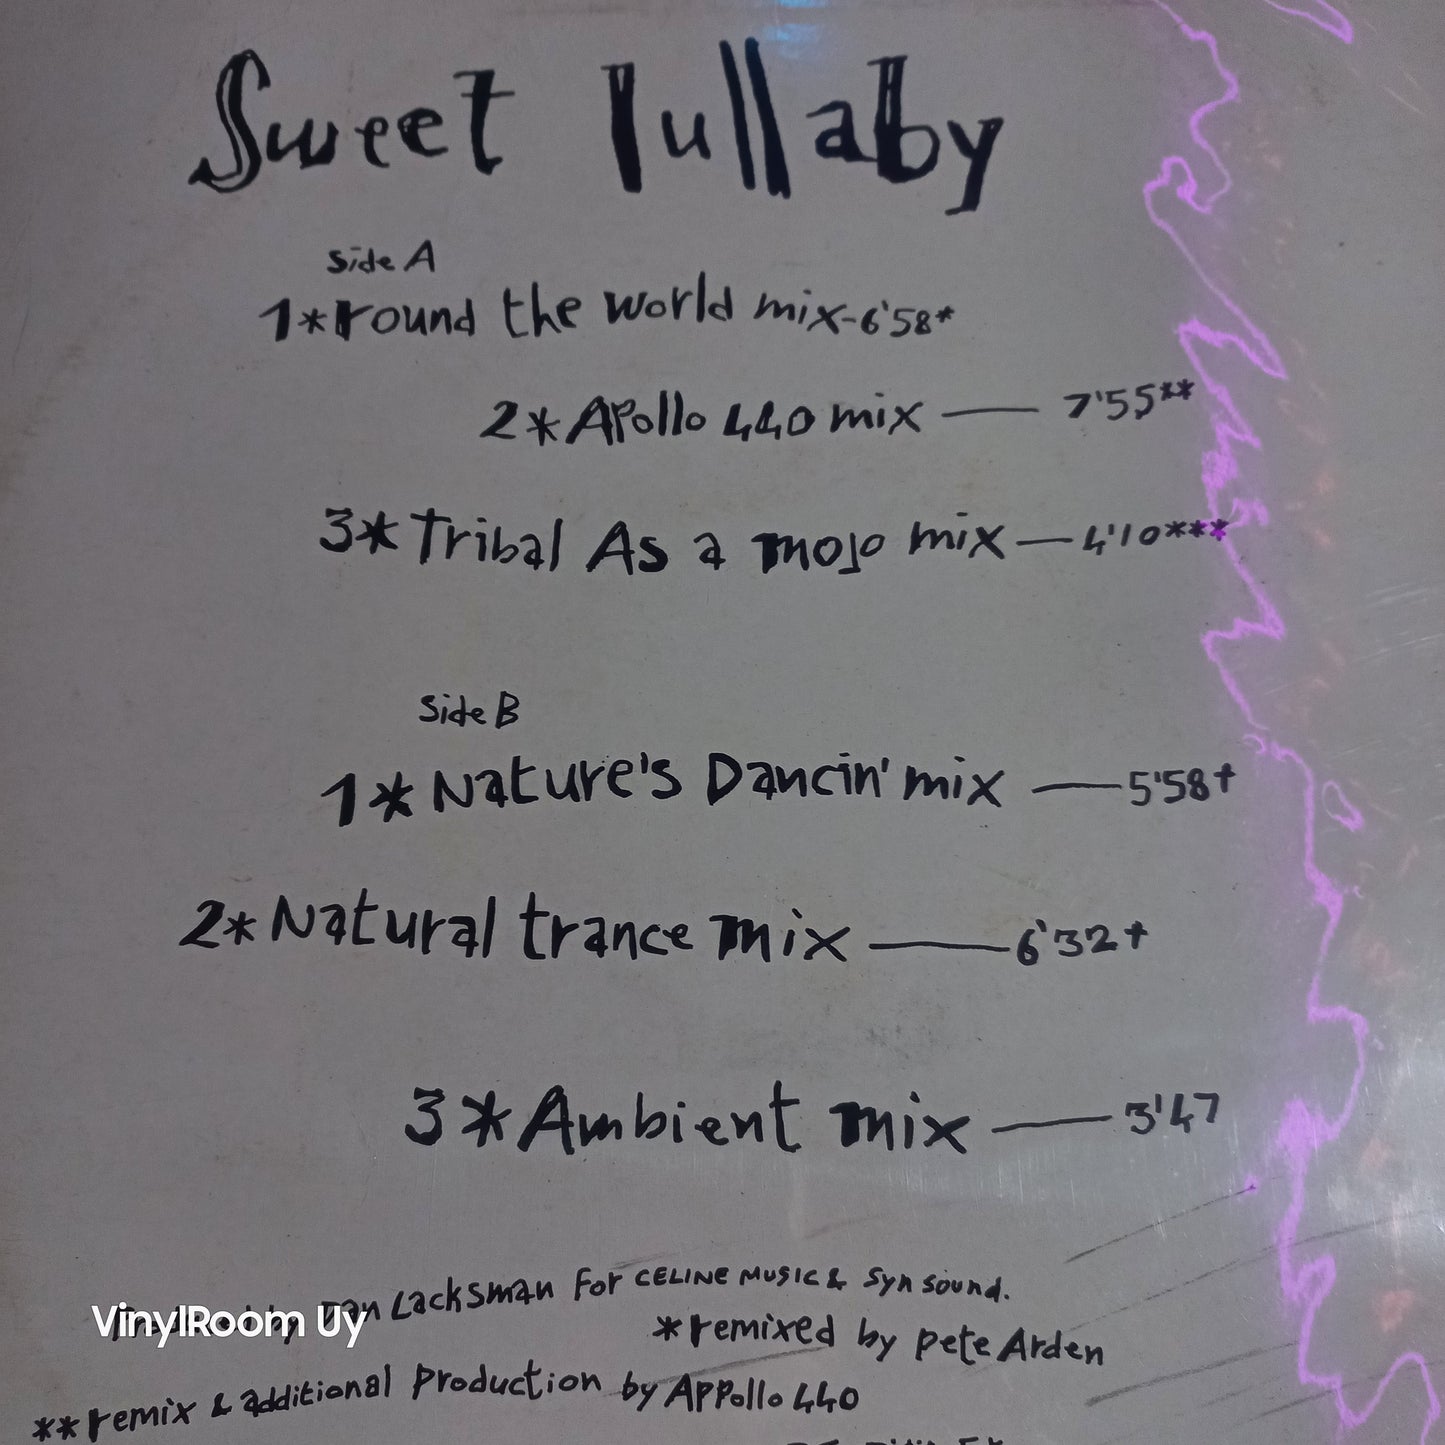 Sweet lullaby
Side A
1*round the world mix-6'58*
2*Apollo 440 mix — 7'55**
3*Tribal As a mojo mix—4'10***
Side B
1*Nature's Dancin' mix —5'58+
2*Natural trance mix —6'32+
3*Ambient mix —3'47
by Dan Lacksman For CELINE MUSIC & Syn Sound.
VinylRoom Uy
*remixed by pete Arden
**remix & additional Production by APPollo 440